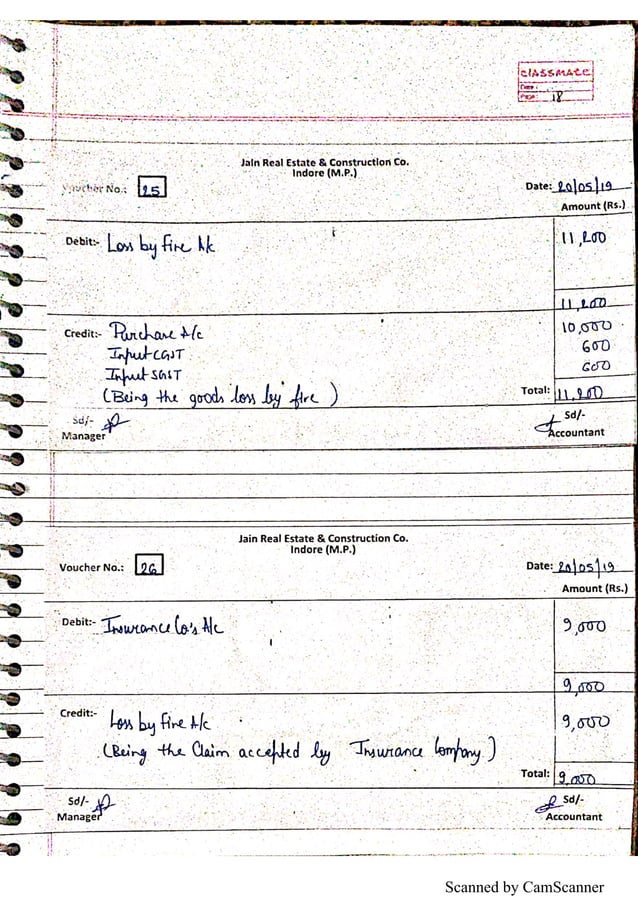 CLASSMATE
Date :
Page : 18
Jain Real Estate & Construction Co.
Indore (M.P.)
Voucher No.: 25 Date: 20/05/19
Amount (Rs.)
Debit:- Loss by fire A/c 11,200
11,200
Credit:- Purchase A/c 10,000
Input CGST 600
Input SGST 600
(Being the goods loss by fire) Total: 11,200
Sd/- Sd/-
Manager Accountant
Jain Real Estate & Construction Co.
Indore (M.P.)
Voucher No.: 26 Date: 20/05/19
Amount (Rs.)
Debit:- Insurance Co's A/c 9,000
9,000
Credit:- Loss by fire A/c 9,000
(Being the Claim accepted by Insurance Company)
Total: 9,000
Sd/- Sd/-
Manager Accountant
Scanned by CamScanner